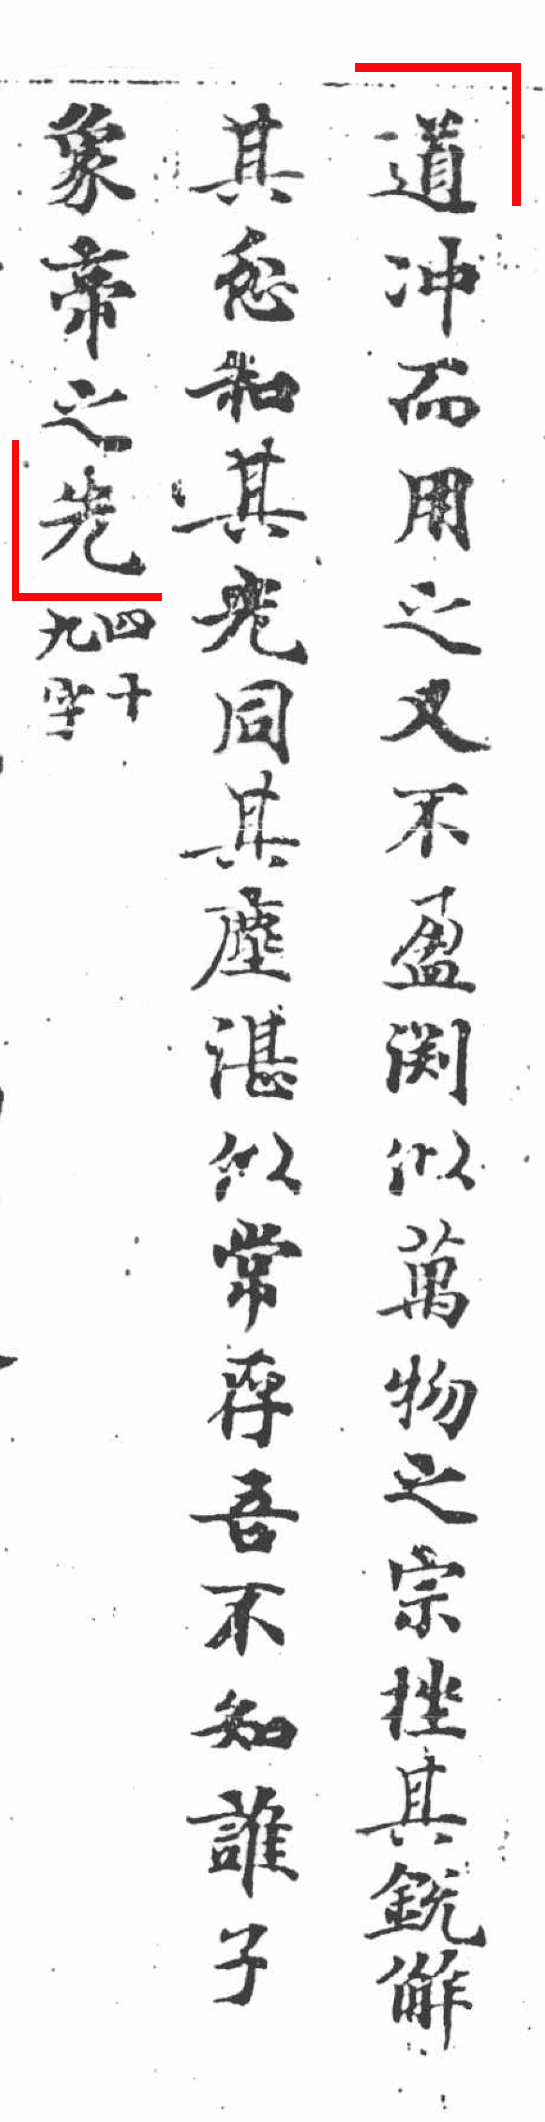 道冲而用之又不盈渕似萬物之宗挫其銳解
其忿和其光同其塵湛似常存吾不知誰子
象帝之先四十九字